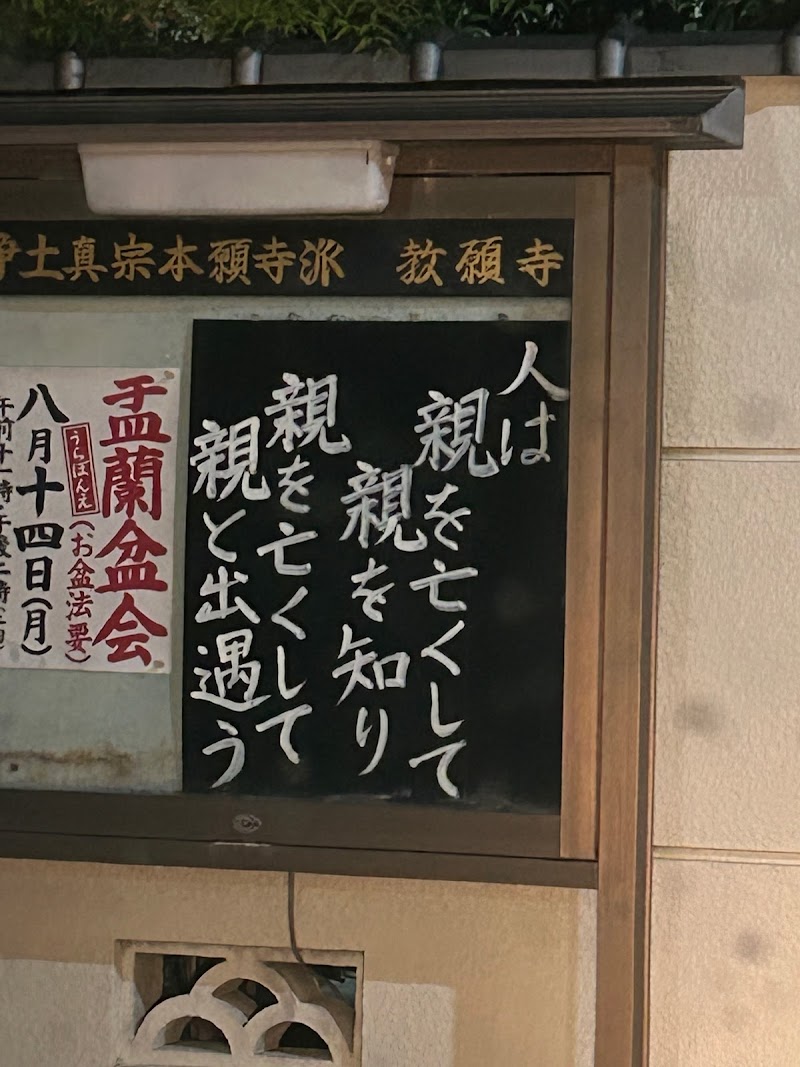 浄土真宗本願寺派 教願寺
人は
親を亡くして
親を知り
親を亡くして
親と出遇う
盂蘭盆会
うらぼんえ
(お盆法要)
八月十四日(月)